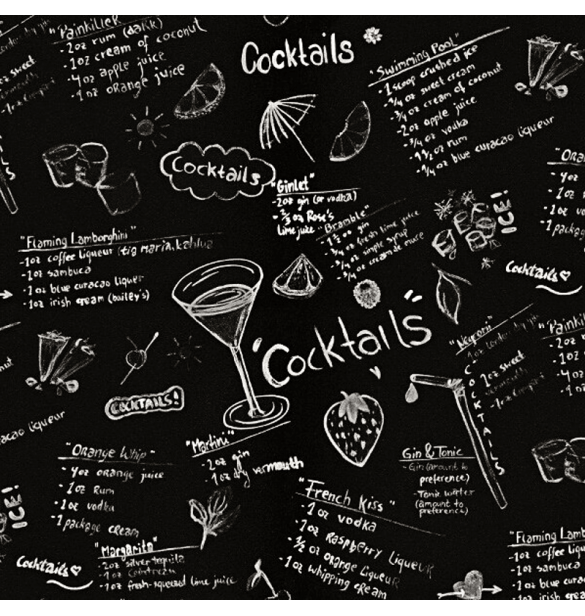 "Painkiller"
-2oz rum (dark)
-1oz cream of coconut
-4oz apple juice
-1oz orange juice
Cocktails
"Swimming Pool"
-1 scoop crushed ice
-3/4 oz sweet cream
-3/4 oz cream of coconut
-2oz apple juice
-3/4 oz vodka
-1 1/2 oz rum
-1/4 oz blue curacao liqueur
sweet
Cocktails
"Gimlet"
-2oz gin (or vodka)
-2/3 oz Rose's
lime juice
"Bramble"
-1 1/2 oz gin
-3/4 oz fresh lime juice
simple syrup
ICE!
Cocktails
"Flaming Lamborghini"
-1oz coffee liqueur (tia maria, kahlua
-1oz sambuca
-1oz blue curacao liquer
-1oz irish cream (bailey's)
'Cocktails"
"Negroni"
-1oz sweet
COCKTAILS
COCKTAILS!
"Martini"
-2oz gin
-1oz dry vermouth
"Orange Whip"
-4oz orange juice
-1oz Rum
-1oz vodka
-1 package cream
Gin & Tonic
-Gin (amount to
preference)
-Tonic water
(amount to
preference)
"French Kiss"
-1oz vodka
-1oz Raspberry Liqueur
-1/2 oz orange Liqueur
-1oz whipping cream
"Margarita"
-2oz silver tequila
-1oz Cointreau
-1oz fresh-squeezed lime juice
Cocktails
ICE!
acao liqueur
"Flaming Lamb
-1oz coffee liqu
-1oz sambuca
-1oz blue cur
-1oz irish